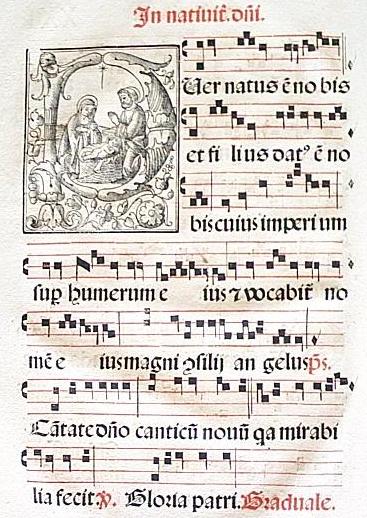 In nativit̃. dñi.
Uer natus ẽ no bis
et fi lius dat⁹ ẽ no
bis cuius imperi um
sup humerum e ius ⁊ vocabit̃ no
mẽ e ius magni ↄsilij an gelus p̃s.
Cãtate dño canticũ novũ qa mirabi
lia fecit. ℣. Gloria patri. Graduale.